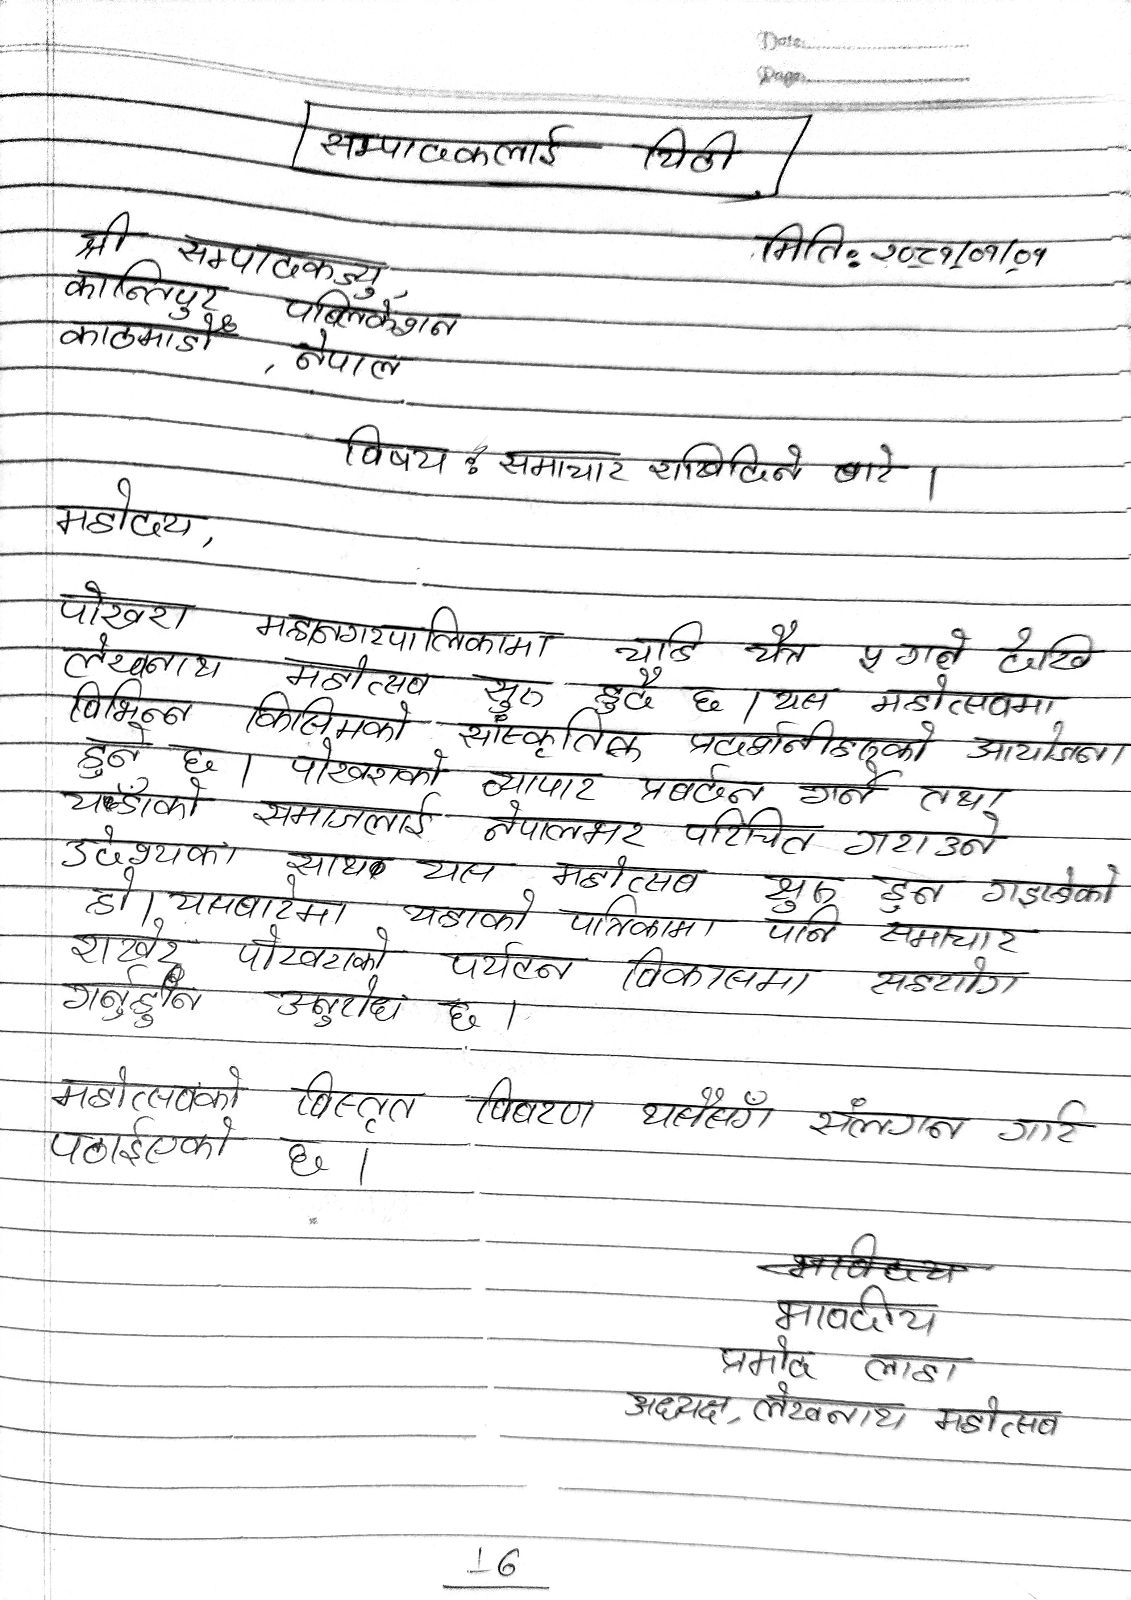 Date
Page
सम्पादकलाई चिठी
मिति: २०८१/०१/०१
श्री सम्पादकज्यु,
कान्तिपुर पब्लिकेशन
काठमाडौं, नेपाल
विषय : समाचार राखिदिने बारे ।
महोदय,
पोखरा महानगरपालिकामा यहि चैत्र ५ गते देखि
लेखनाथ महोत्सव सुरु हुदै छ । यस महोत्सवमा
विभिन्न किसिमको सांस्कृतिक प्रदर्शनीहरुको आयोजना
हुने छ । पोखराको व्यापार प्रवर्द्धन गर्न तथा
यहाँको समाजलाई नेपालभर परिचित गराउने
उद्देश्यका साथ यस महोत्सव सुरु हुन गइरहेको
हो । यसबारेमा यहाको पत्रिकामा पनि समाचार
राखेर पोखराको पर्यटन विकासमा सहयोग
गर्नुहुन अनुरोध छ ।
महोत्सवको विस्तृत विवरण यसैसँग संलगन गरि
पठाईएको छ ।
भावदीय
प्रमोद लाहा
अध्यक्ष, लेखनाथ महोत्सव
16